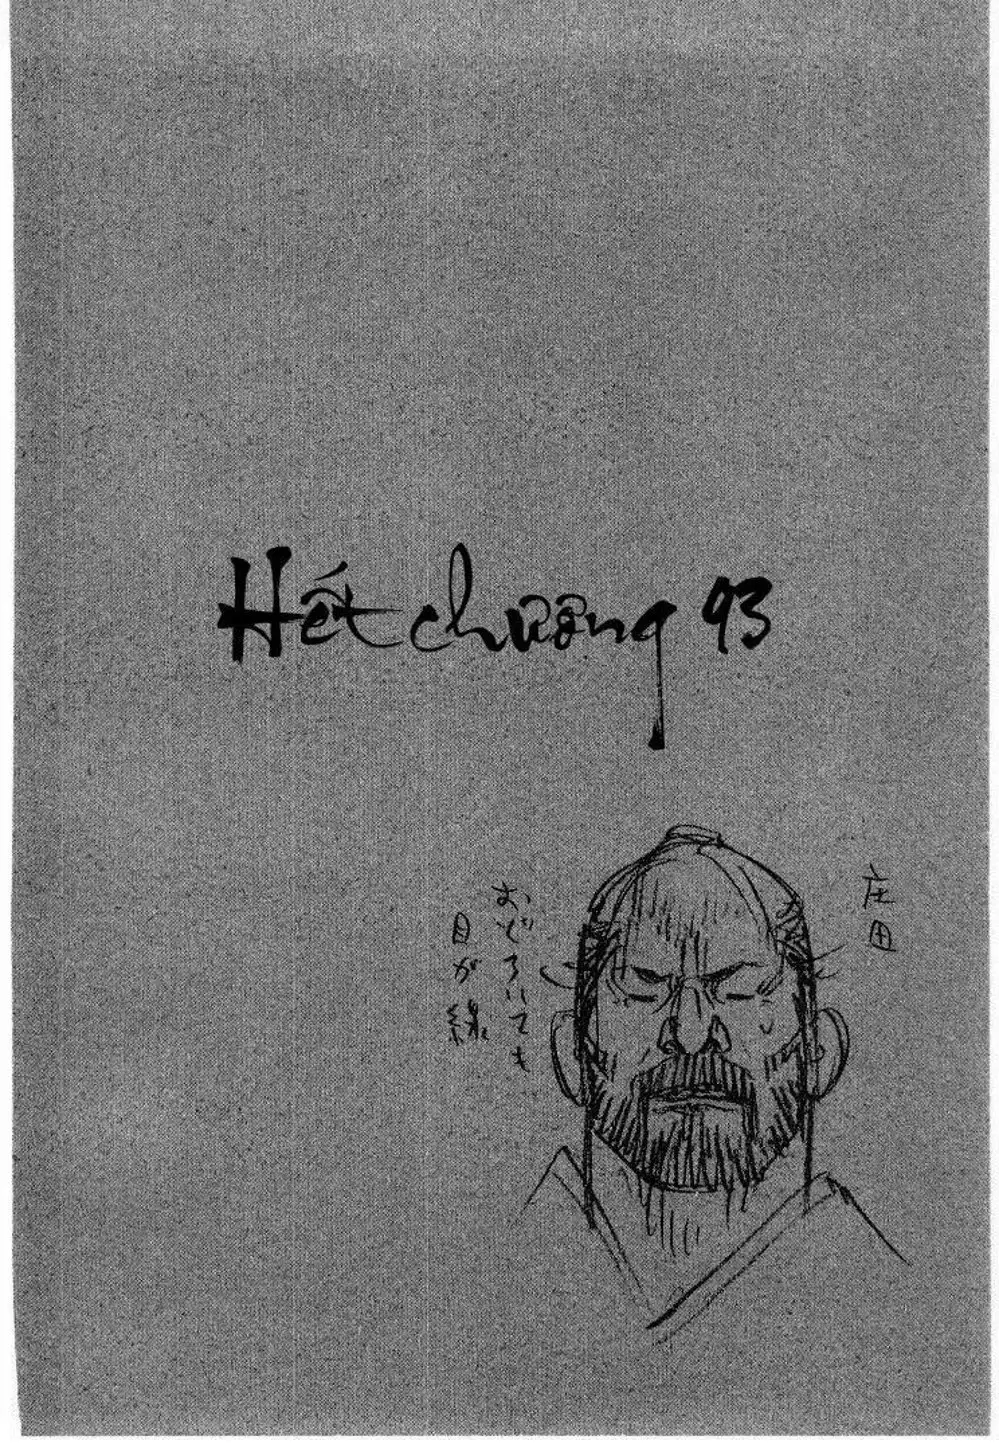 Hết chương 93
庄田
おどろいても
目が線